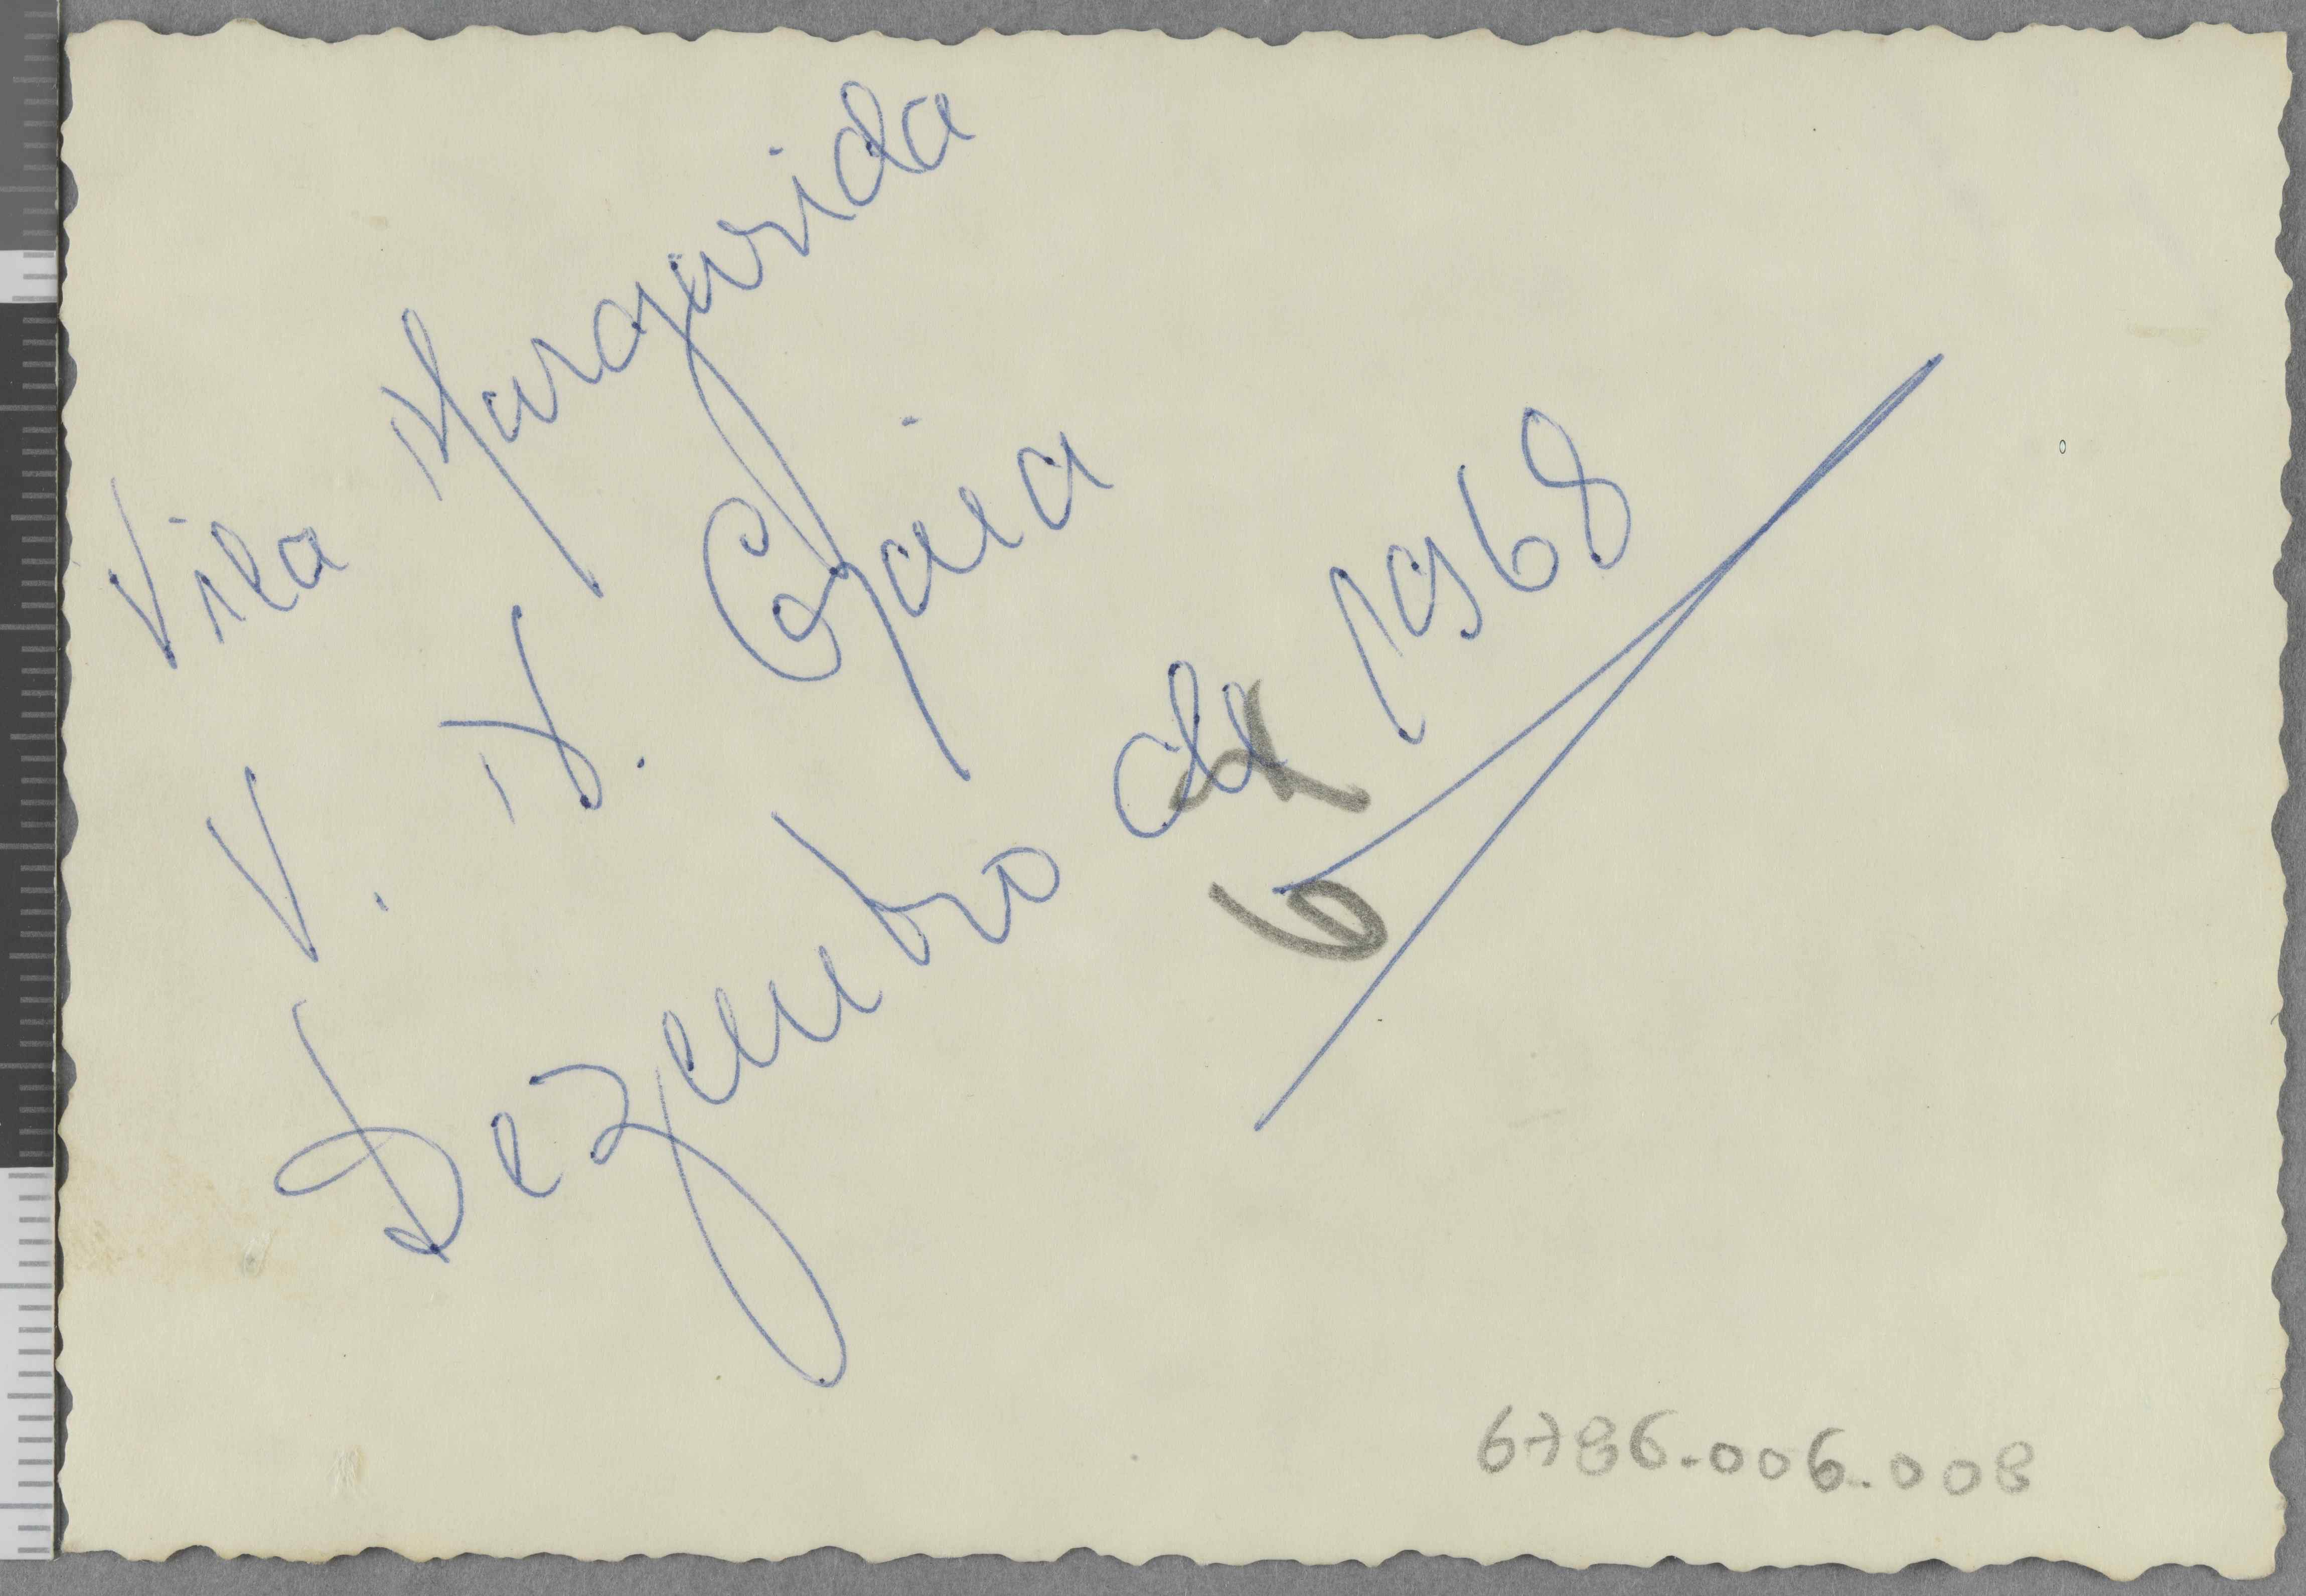 Vila Margarida
V. N. Gaia
Dezembro de 1968
6786.006.008